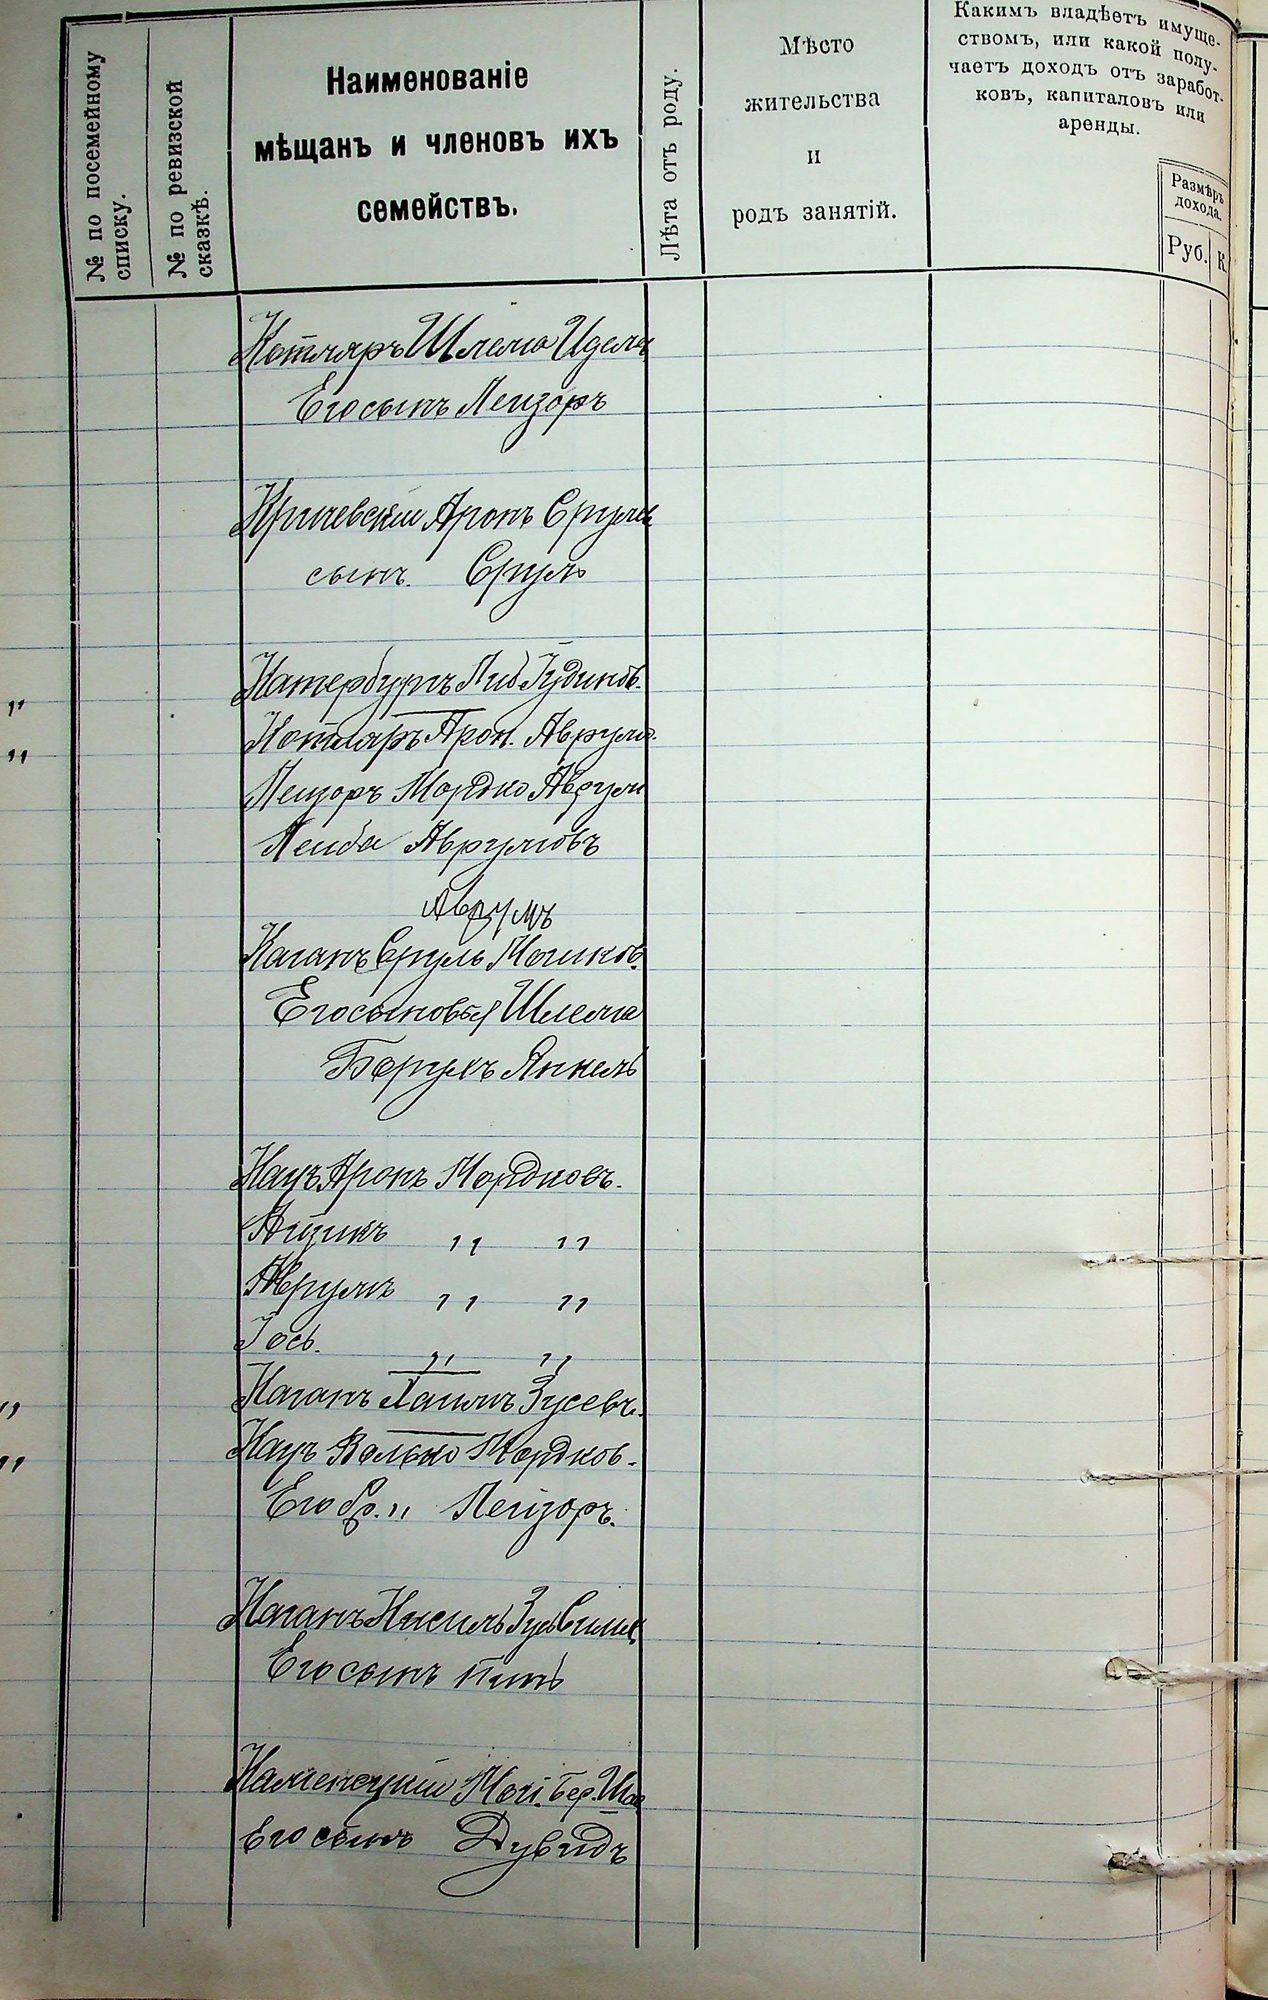 № по посемейному
списку.
№ по ревизской
сказкѣ.
Наименованіе
мѣщанъ и членовъ ихъ
семействъ.
Лѣта отъ роду.
Мѣсто
жительства
и
родъ занятій.
Какимъ владѣетъ имуще-
ствомъ, или какой полу-
чаетъ доходъ отъ заработ-
ковъ, капиталовъ или
аренды.
Размѣръ
дохода.
Руб. К.
Котляръ Шлема Иделе
Его сынъ Лейзоръ
Кричевскій Аронъ Срулев
сынъ. Сруль
Катербургъ Либ Іудиков.
" Котляръ Арон. Аврумо.
" Лейзоръ Мордко Аврум
Лейба Аврумовъ
Аврумъ
Каганъ Сруль Мошков.
Его сыновья Шлема
Борухъ Янкель
Кацъ Аронъ Мордковъ.
Айзикъ " "
Аврумъ " "
Іось. " "
" Каганъ Хаимъ Зусевъ.
" Кацъ Волько Мордков.
Его бр. " Лейзоръ.
Каганъ Кисиль
Его сынъ Пинь
Каменецкій Мой. Бер.
Его сынъ Дувидъ